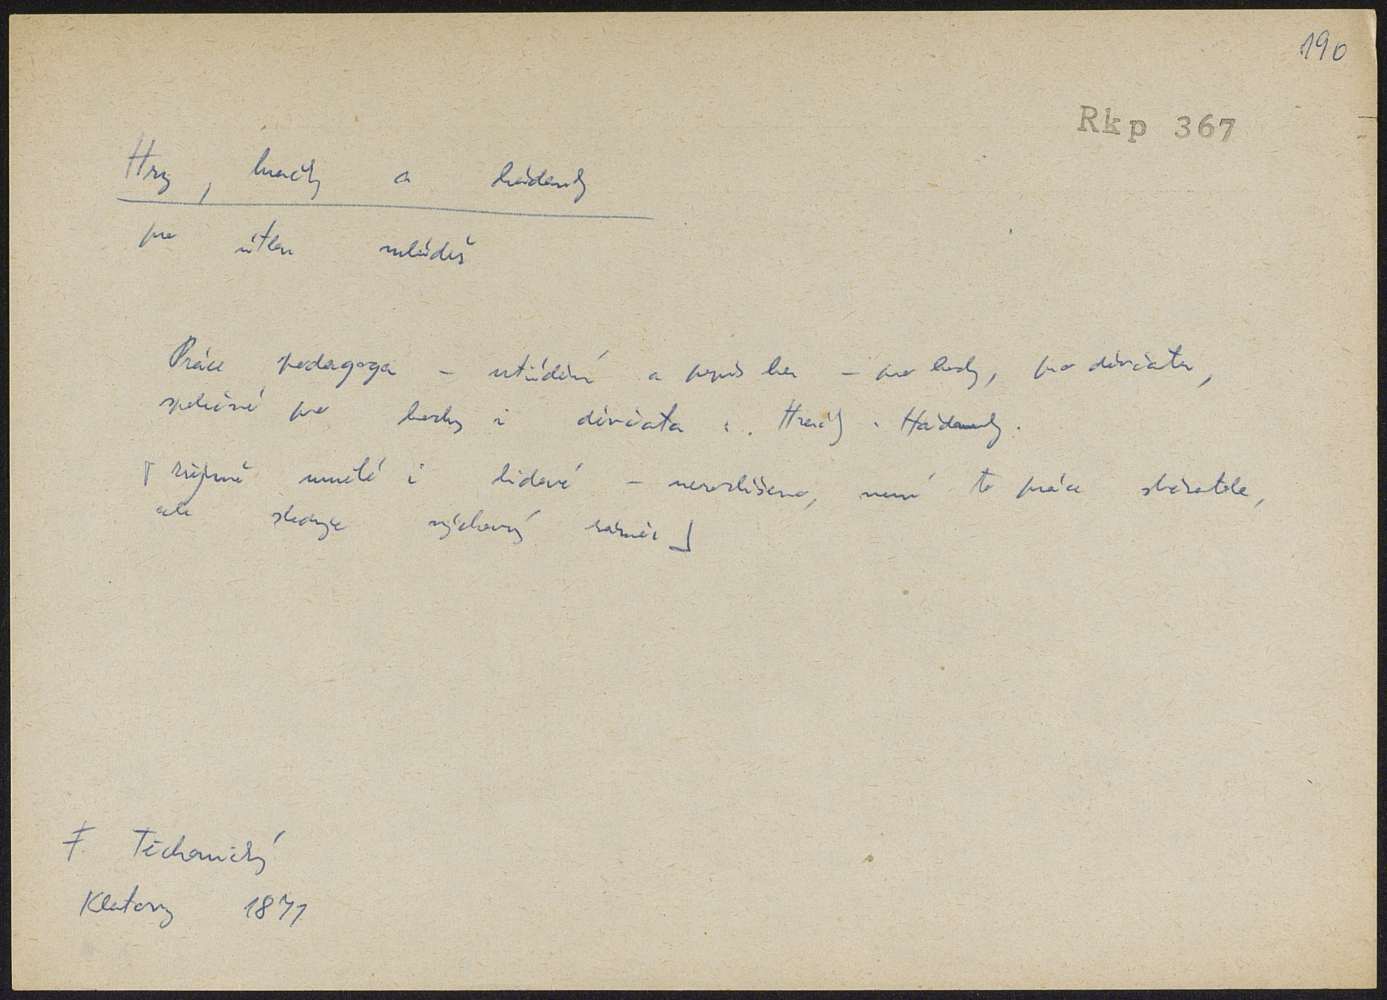 190
Rkp 367
Hry, hračky a hádanky
pro útlou mládež
Práce pedagoga – utřídění a popis her – pro hochy, pro děvčata,
společné pro hochy i děvčata. Hračky. Hádanky.
zřejmě umělé i lidové – nerozlišeno, není to práce sběratele,
ale sleduje výchovný záměr
F. Těchonický
Klatovy 1871